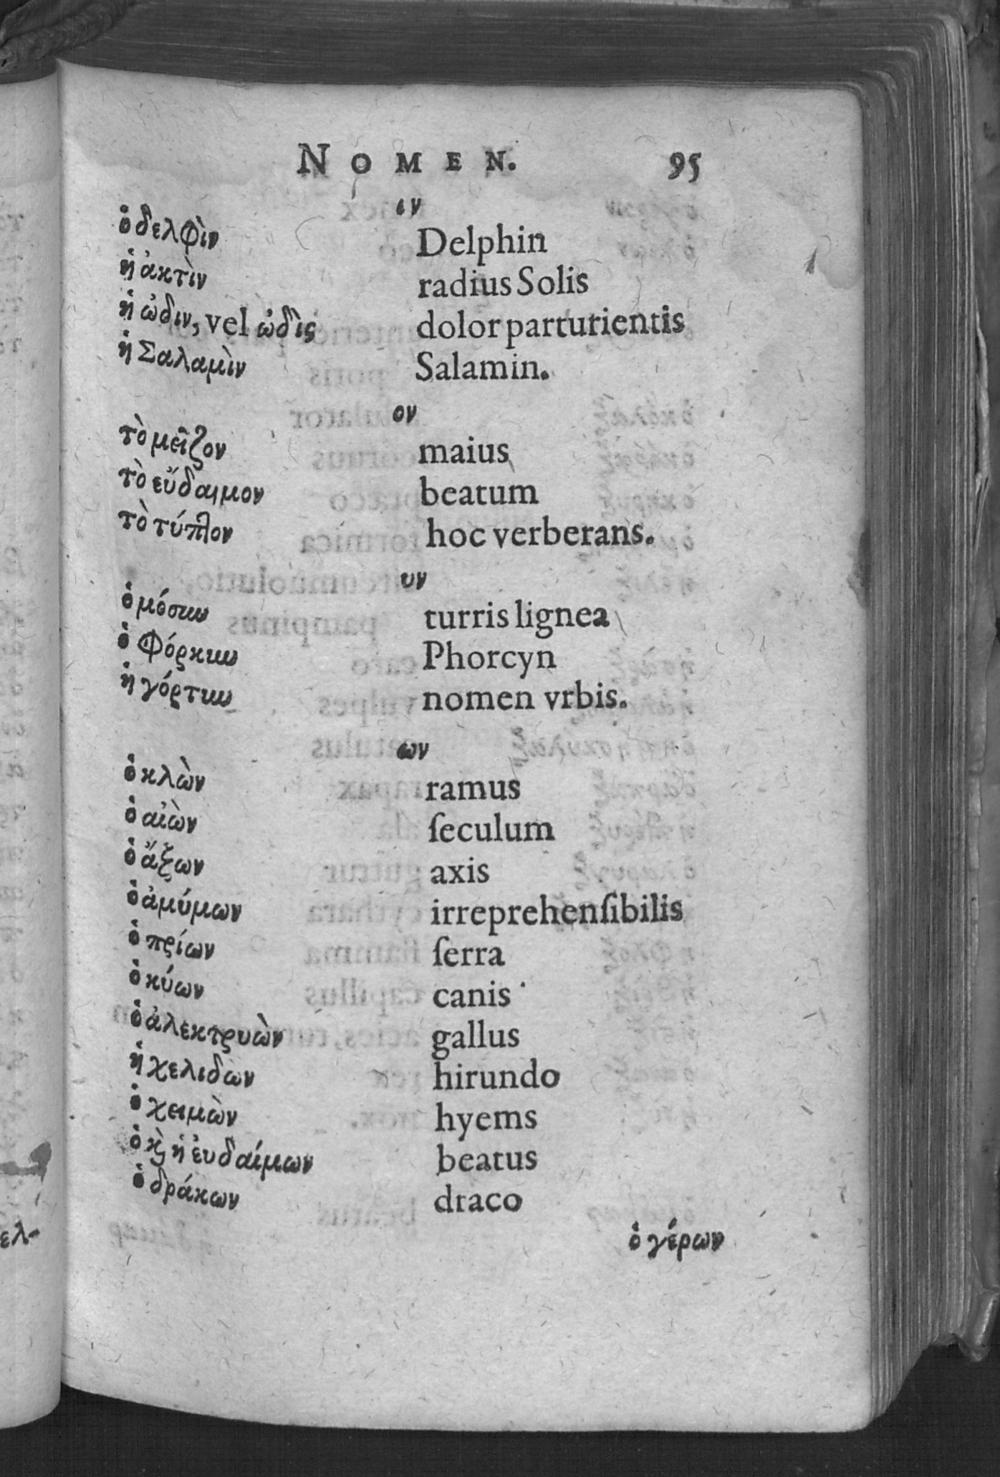 NOMEN. 95
ιν
ὁ δελφὶν Delphin
ἡ ἀκτὶν radius Solis
ἡ ὠδιν, vel ὠδὶς dolor parturientis
ἡ Σαλαμὶν Salamin.
ον
τὸ μεῖζον maius
τὸ εὔδαιμον beatum
τὸ τύπτον hoc verberans.
υν
ὁ μόσυν turris lignea
ὁ Φόρκυν Phorcyn
ἡ γόρτυν nomen vrbis.
ων
ὁ κλὼν ramus
ὁ αἰὼν ſeculum
ὁ ἄξων axis
ὁ ἀμύμων irreprehenſibilis
ὁ πρίων ſerra
ὁ κύων canis
ὁ ἀλεκτρυὼν gallus
ἡ χελιδὼν hirundo
ὁ χειμὼν hyems
ὁ ϗ ἡ ἐυδαίμων beatus
ὁ δράκων draco
ὁ γέρων